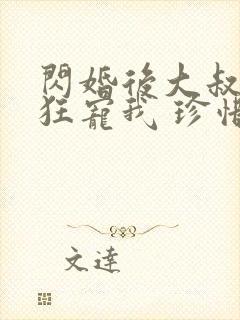 閃婚後大叔
狂寵我 珍惜
文達